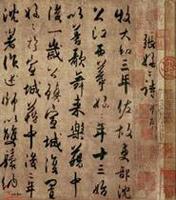 張好好詩 并序
牧大和三年佐故吏部沈
公江西幕好好年十三始
以善歌舞來樂籍中
後一歲公鎮宣城復置
好好於宣城籍中後二年
沈著作述師以雙鬟納